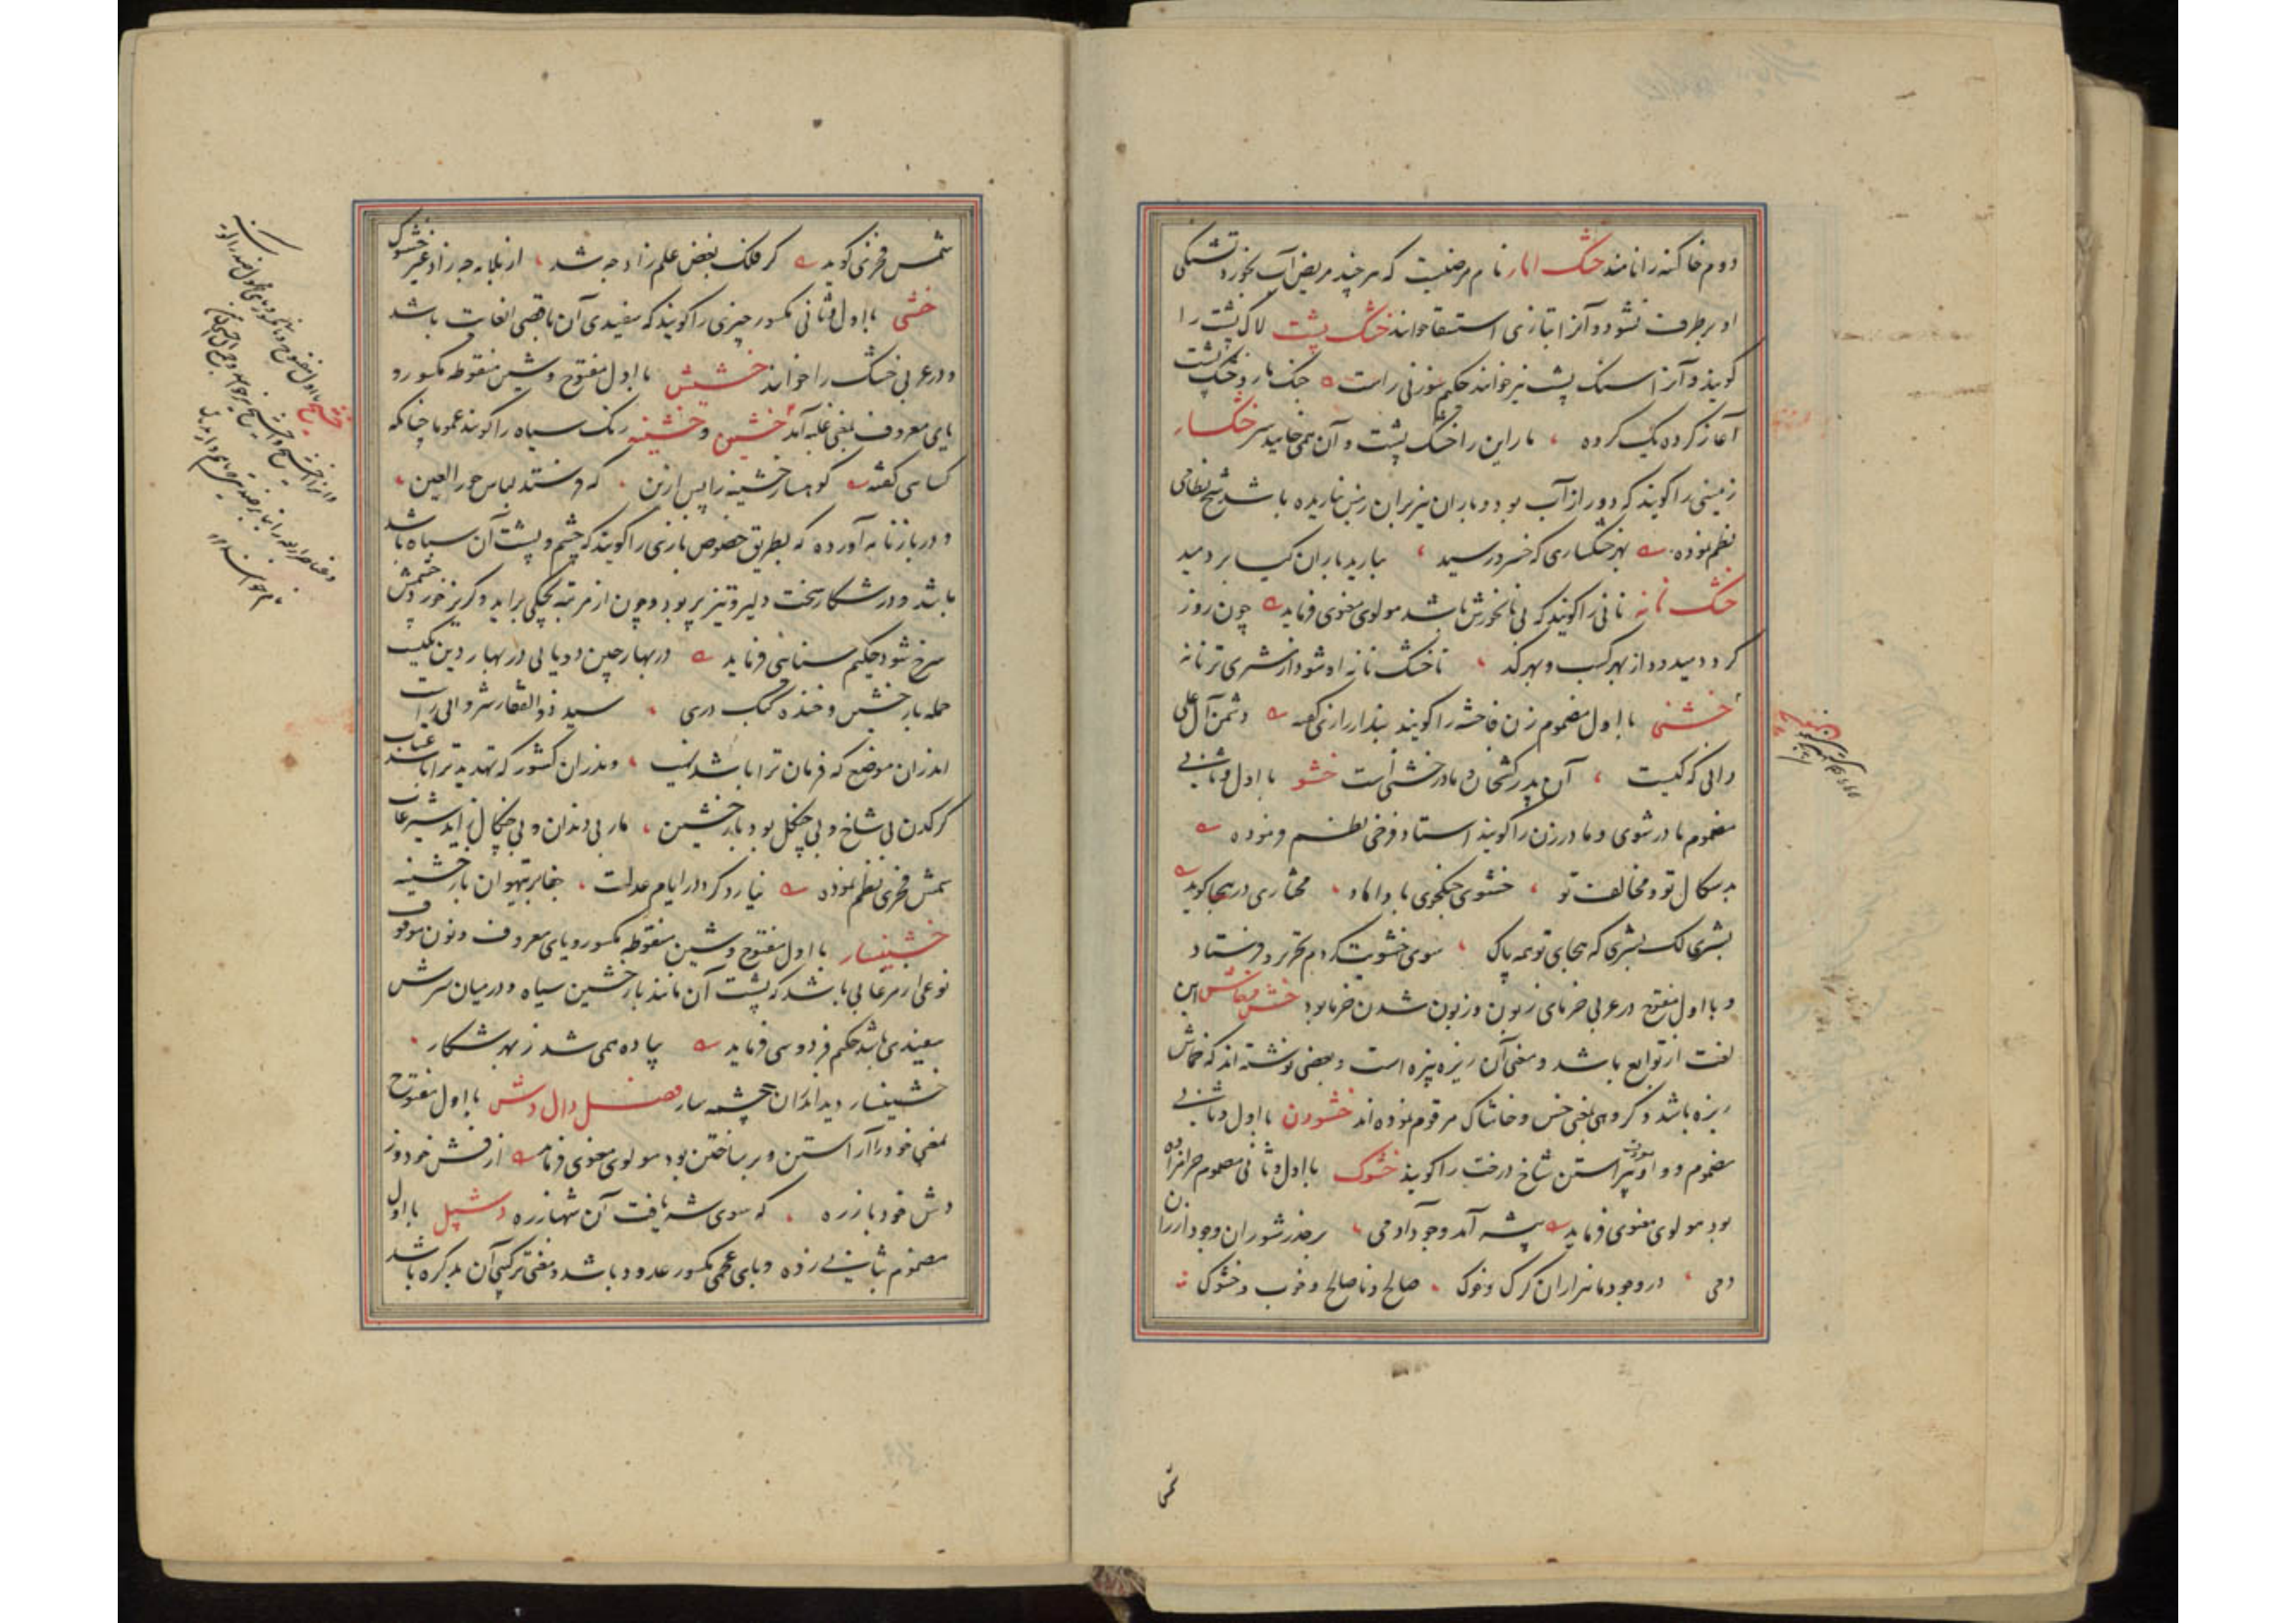 دوم خاکینه را نامند خشک امار نام مرضیست که هر چند مریض آب بخورد تشنگی
او برطرف نشود و آنرا بتازی استسقا خوانند خشک پشت لاک پشت را
گویند و آنرا سنک پشت نیز خوانند حکیم سوزنی راست
آغاز کرده یک کرده ، مار این را خشک پشت و آن همی خاید سر خشکسار
زمینی را گویند که دور از آب بود و باران نیز بران زمین نباریده باشد شیخ نظامی
نظم نموده بهر خشکساری که خسرو رسید ، ببارید باران گیا بر دمید
خشک نانه نانی را گویند که بی نانخورش باشد مولوی معنوی فرماید چون روز
گردد میدود از بهر کسب و بهر کد ، تا خشک نانه او شود از مشتری ترنانه
خشنی با اول مضموم زن فاحشه را گویند بندار رازی گفته دشمن آل علی
دانی که کیست ، آن پدر کشخان و مادر خشنی است خشو با اول و ثانی
مضموم مادر شوی و مادر زن را گویند استاد فرخی نظم نموده
بدسکال تو و مخالفت تو ، خشوی جنکجوی با داماد ، مختاری در هجا گوید
بشری لک بشری که هجای تو همه پاک ، سوی خشویت کردم تحریر و فرستاد
و با اول مفتوح در عربی خرمای زبون و زبون شدن خرما بود خش و خاش این
لغت از توابع باشد و معنی آن ریزه پیزه است و بعضی نوشته اند که خماش
ریزه باشد و گروهی بمعنی خس و خاشاک مرقوم نموده اند خشودن با اول و ثانی
مضموم و واو معروف پیراستن شاخ درخت را گویند خشوک با اول و ثانی مضموم حرامزاده
بود مولوی معنوی فرماید بیشه آمد وجود آدمی ، بر حذر شو زان وجود ار زان
دمی ، در وجود ما هزاران گرگ و خوک ، صالح و ناصالح و خوب و خشوک
شمس فخری گوید گر فلک بغض علم زاد چه شد ، از بلایه چه زاد غیر خشوک
خشی با اول و ثانی مکسور چیزی را گویند که سفیدی آن باقصی الغایت باشد
و در عربی خشک را خوانند خشیش با اول مفتوح و شین منقوطه مکسور و
یای معروف بمعنی غلبه آمد خشین و خشینه رنک سیاه را گویند عموما چنانکه
کسایی گفته کوهسار خشینه را پس ازین ، که فرستد لباس حور العین
و در بازنامه آورده که بطریق خصوص بازی را گویند که چشم و پشت آن سیاه باشد
باشد و در شکار سخت دلیر و تیز پر بود و چون از مرتبه بچگی براید و کریز خورد چشمش
سرخ شود حکیم سنائی فرماید در بهار چین و دیایی در بهار دین یکیست
حمله باز خشین و خنده کبک دری ، سید ذو الفقار شروانی راست
اندران موضع که فرمان ترا باشد نهیب ، وندران کشور که تهدید ترا باشد عتاب
کرکدن بی شاخ و بی چنکل بود باز خشین ، مار بی دندان و بی چنکال زاید شیر غاب
شمس فخری نظم نموده نیارد کرد در ایام عدلت ، جفا بر تیهوان باز خشینه
خشینسار با اول مفتوح و شین منقوطه مکسور و یای معروف و نون موقوف
نوعی از مرغابی باشد که پشت آن مانند باز خشین سیاه و در میان سرش
سفیدی باشد حکیم فردوسی فرماید پیاده همی شد ز بهر شکار ،
خشینسار دید اندران چشمه سار فصل دال دش با اول مفتوح
بمعنی خود را آراستن و بر ساختن بود مولوی معنوی فرماید از فش خود وز
دش خود باز ره ، که سوی شه یافت آن شهباز ره دشپل با اول
مضموم بثانی زده و بای عجمی مکسور غدود باشد و معنی ترکیبی آن بد گره باشد